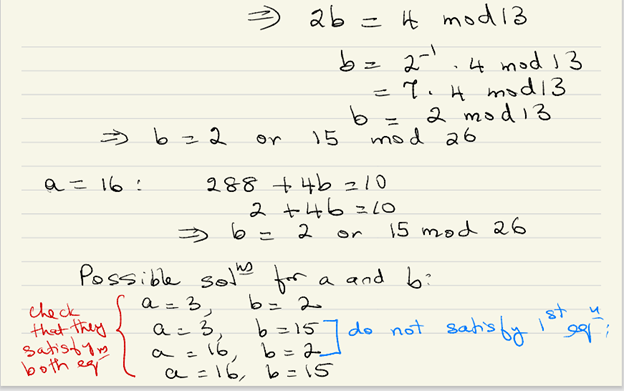 ⇒ 2b = 4 mod 13
b = 2⁻¹ . 4 mod 13
= 7 . 4 mod 13
b = 2 mod 13
⇒ b = 2 or 15 mod 26
a = 16 : 288 + 4b = 10
2 + 4b = 10
⇒ b = 2 or 15 mod 26
Possible solⁿˢ for a and b:
check that they satisfy both eqⁿˢ
a = 3, b = 2
a = 3, b = 15
a = 16, b = 2
do not satisfy 1ˢᵗ eqⁿ;
a = 16, b = 15